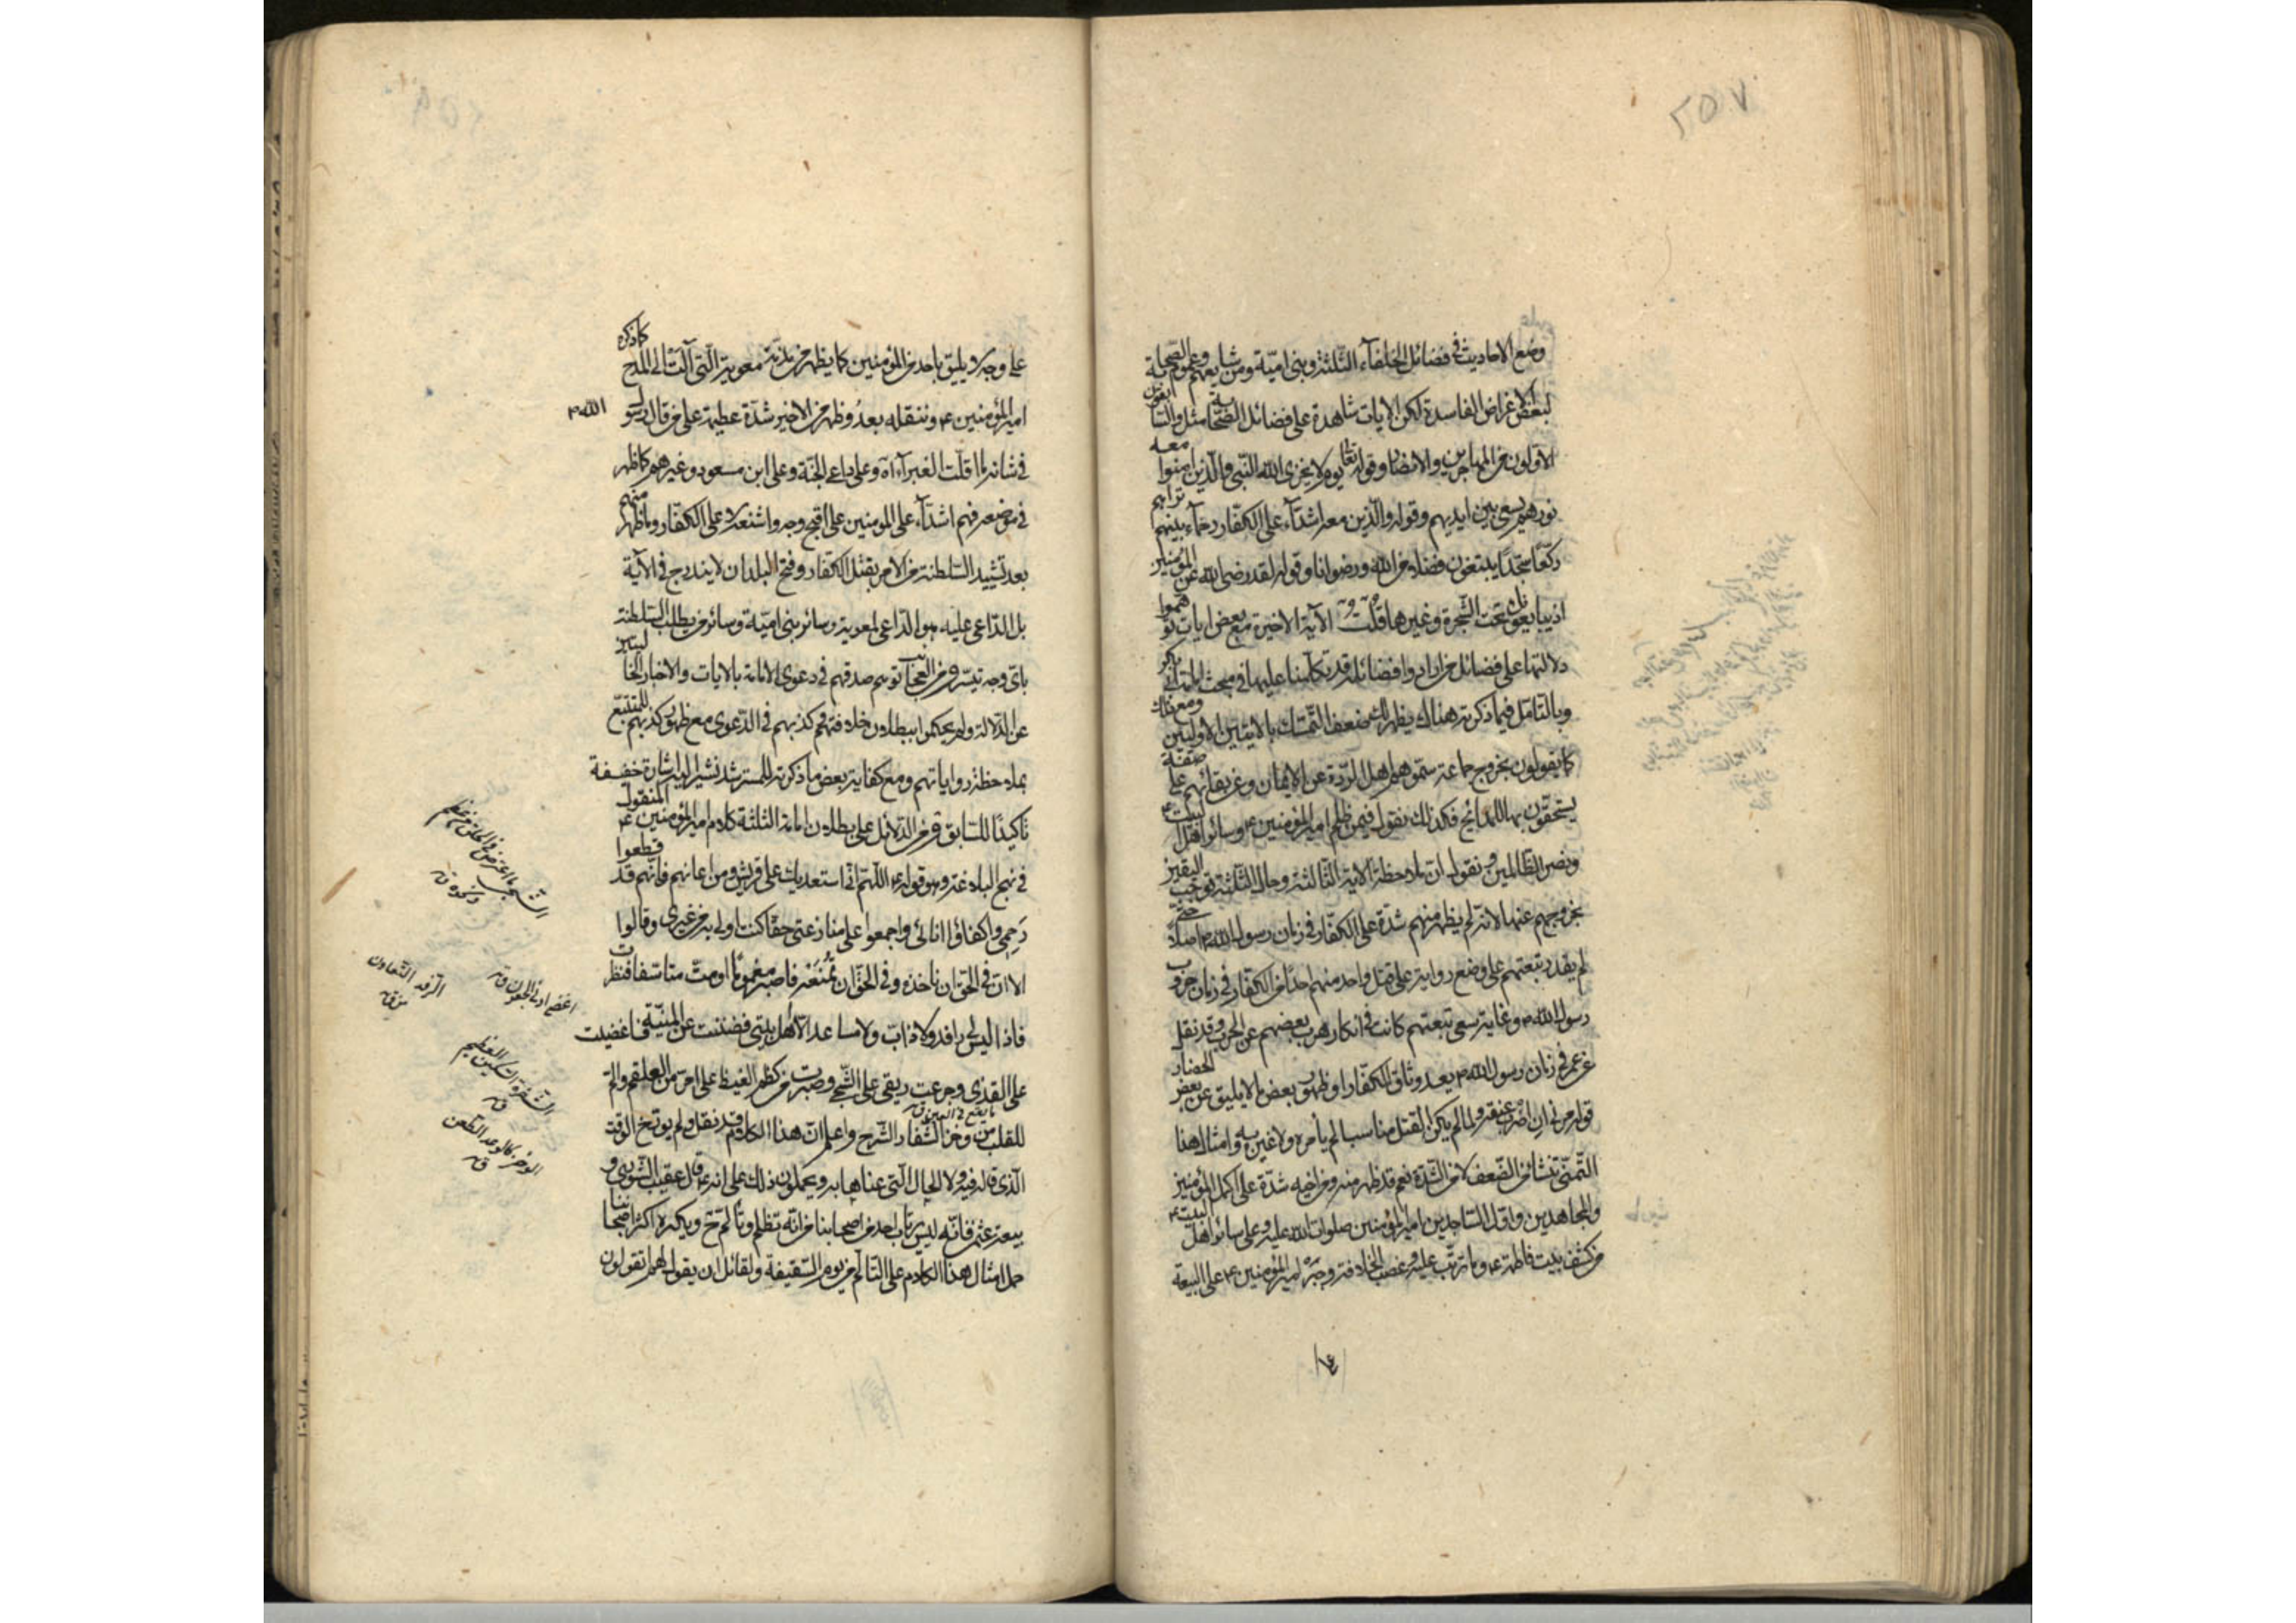 ٢٥٧
وضع الاحاديث في فضائل الخلفآء الثلثة وبنى اميّة ومن شايعهم وعموم الصحابة
لبعض الاغراض الفاسدة لكن الايات شاهدة على فضائل الصّحابة مثل والسّابقون
الاوّلون من المهاجرين والانصار وقوله تعالى يوم لا يخزى الله النّبى والّذين امنوا معه
نورهم يسعى بين ايديهم وقوله والّذين معه اشدّآء على الكفّار رحمآء بينهم تراهم
ركّعا سجّدا يبتغون فضلا من الله ورضوانا وقوله لقد رضى الله عن المؤمنين
اذ يبايعونك تحت الشّجرة وغيرها قلت الآية الاخيرة مع بعض ايات توهّموا
دلالتها على فضائل من ارادوا فضائله قد تكلّمنا عليها في مبحث امامة ابى بكر
وبالتامّل فيما ذكرته هناك يظهر لك ضعف التّمسّك بالايتين الاوليين ومع ذلك
كما يقولون بخروج جماعة سمّوهم اهل الردّة عن الايمان وعن بقائهم على صفة
يستحقّون بها المدائح فكذلك نقول فيمن ظلم امير المؤمنين ع وسائر اهل البيت ع
ونصر الظّالمين ونقول ان ملاحظة الاية الثّالثة وحال الثّلثة توجب اليقين
بخروجهم عنها لانّه لم يظهر منهم شدّة على الكفّار في زمان رسول الله ص اصلا حتّى
لم يقدر تبعتهم على وضع رواية على قتل واحد منهم احدا من الكفّار في زمان حروب
رسول الله ص وغاية سعى تبعتهم كانت في انكار هرب بعضهم عن الحرب وقد نقل
عن عمر في زمان رسول الله ص بعد وثاق الكفّار او ظهور بعض ما لا يليق عن بعض الحضّار
قوله مرنى ان اضرب عنقه ولمّا لم يكن القتل مناسبا لم يأمره ولا غيره به وامثال هذا
التّمنّى تنشا من الضّعف لا من الشّدّة نعم قد ظهر منه ومن اخيه شدّة على اكمل المؤمنين
والمجاهدين واوّل السّاجدين امير المؤمنين صلوات الله عليه وعلى سائر اهل البيت ع
من كشف بيت فاطمة ع وما ترتّب عليه وغصب الخلافة وجبر امير المؤمنين ع على البيعة
على وجه لا يليق باحد من المؤمنين كما يظهر من معوية الّتى آلت الى المدح كما ذكره
امير المؤمنين ع وننقله بعد وظهر من الاخير شدّة عظيمة على من قال رسول الله ص
في شانه ما اقلّت الغبرآء اه وعلى داعى الجنّة وعلى ابن مسعود وغيرهم كما ظهر
في موضعه فهم اشدّآء على المؤمنين على اقبح وجه واشنعه لا على الكفّار وما ظهر منهم
بعد تشييد السّلطنة من الامر بقتل الكفّار وفتح البلدان لا يندرج في الآية
بل الدّاعى عليه هو الدّاعى لمعوية وسائر بنى اميّة وسائر من يطلب السّلطنة
باىّ وجه تيسّر ومن العجائب توهّم صدقهم في دعوى الامامة بالايات والاخبار الخاليتين
عن الدّلالة ولم يحكموا ببطلان خلافتهم كذبهم في الدّعوى مع ظهور كذبهم للمتتبّع
بملاحظة رواياتهم ومع كفاية بعض ما ذكرته للمسترشد نشير اليه اشارة خفيفة
تاكيدا للسّابق فمن الدّلائل على بطلان امامة الثّلثة كلام امير المؤمنين ع المنقول
في نهج البلاغة وهو قوله ع اللّهمّ انّى استعديك على قريش ومن اعانهم فانّهم قد قطعوا
رحمى واكفاؤا انائى واجمعوا على منازعتى حقّا كنت اولى به من غيرى وقالوا
الا انّ في الحقّ ان تاخذه وفي الحقّ ان تمنعه فاصبر مغموما او مت متاسّفا فنظرت
فاذا ليس لى رافد ولا ذابّ ولا مساعد الّا اهل بيتى فضننت عن المنيّة فاغضيت
على القذى وجرعت ريقى على الشّجى وصبرت من كظم الغيظ على امرّ من العلقم والم
ما يقع في العين ق
للقلب من وخز الشّفار الشّرح واعلم انّ هذا الكلام قد نقل ولم يؤرّخ الوقت
الّذى قاله فيه ولا الحال الّتى عناها به ويحملون ذلك على انه ع قال عقيب الشّورى و
بيعة عثمن فانّه ليس يرتاب احد من اصحابنا من انّه تظلّم وتألّم ح ويكره اكثر اصحابنا
حمل امثال هذا الكلام على التّالّم من يوم السّقيفة ولقائل ان يقول لهم اتقولون
الرّفد التّعاون
اغضى ادنى الجفون ق
الشّفرة السّكّين العظيم
ق
الوخز كالوعد الطّعن
ق